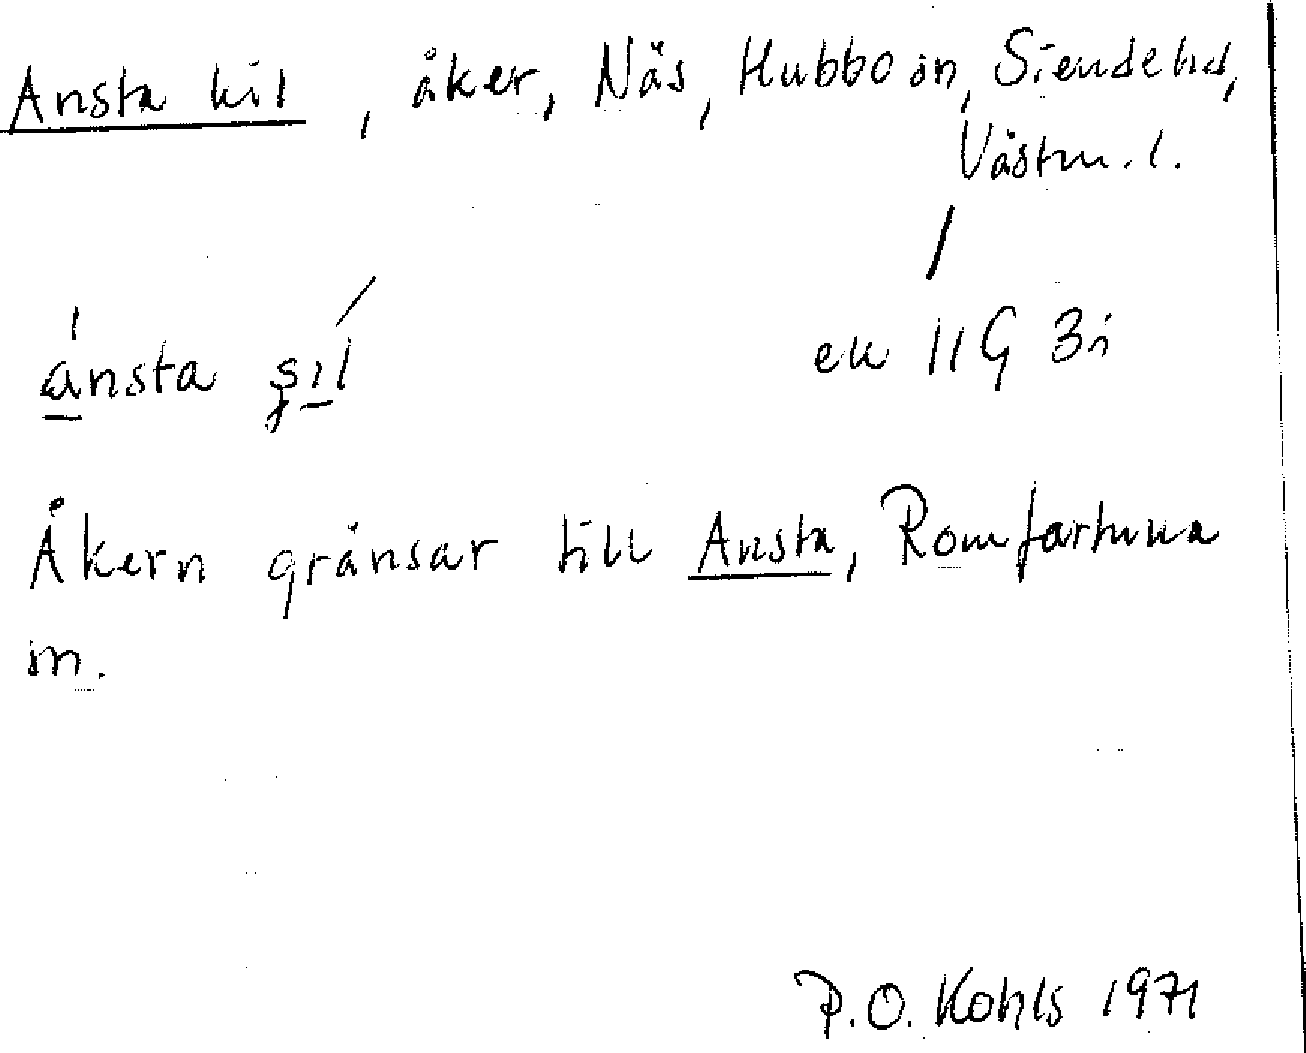 Ansta kil, åker, Näs, Hubbo sn, Siende hd,
Västm. l.
ek 11G 3i
ánsta
Åkern gränsar till Ansta, Romfartuna
sn.
P.O. Kohls 1971